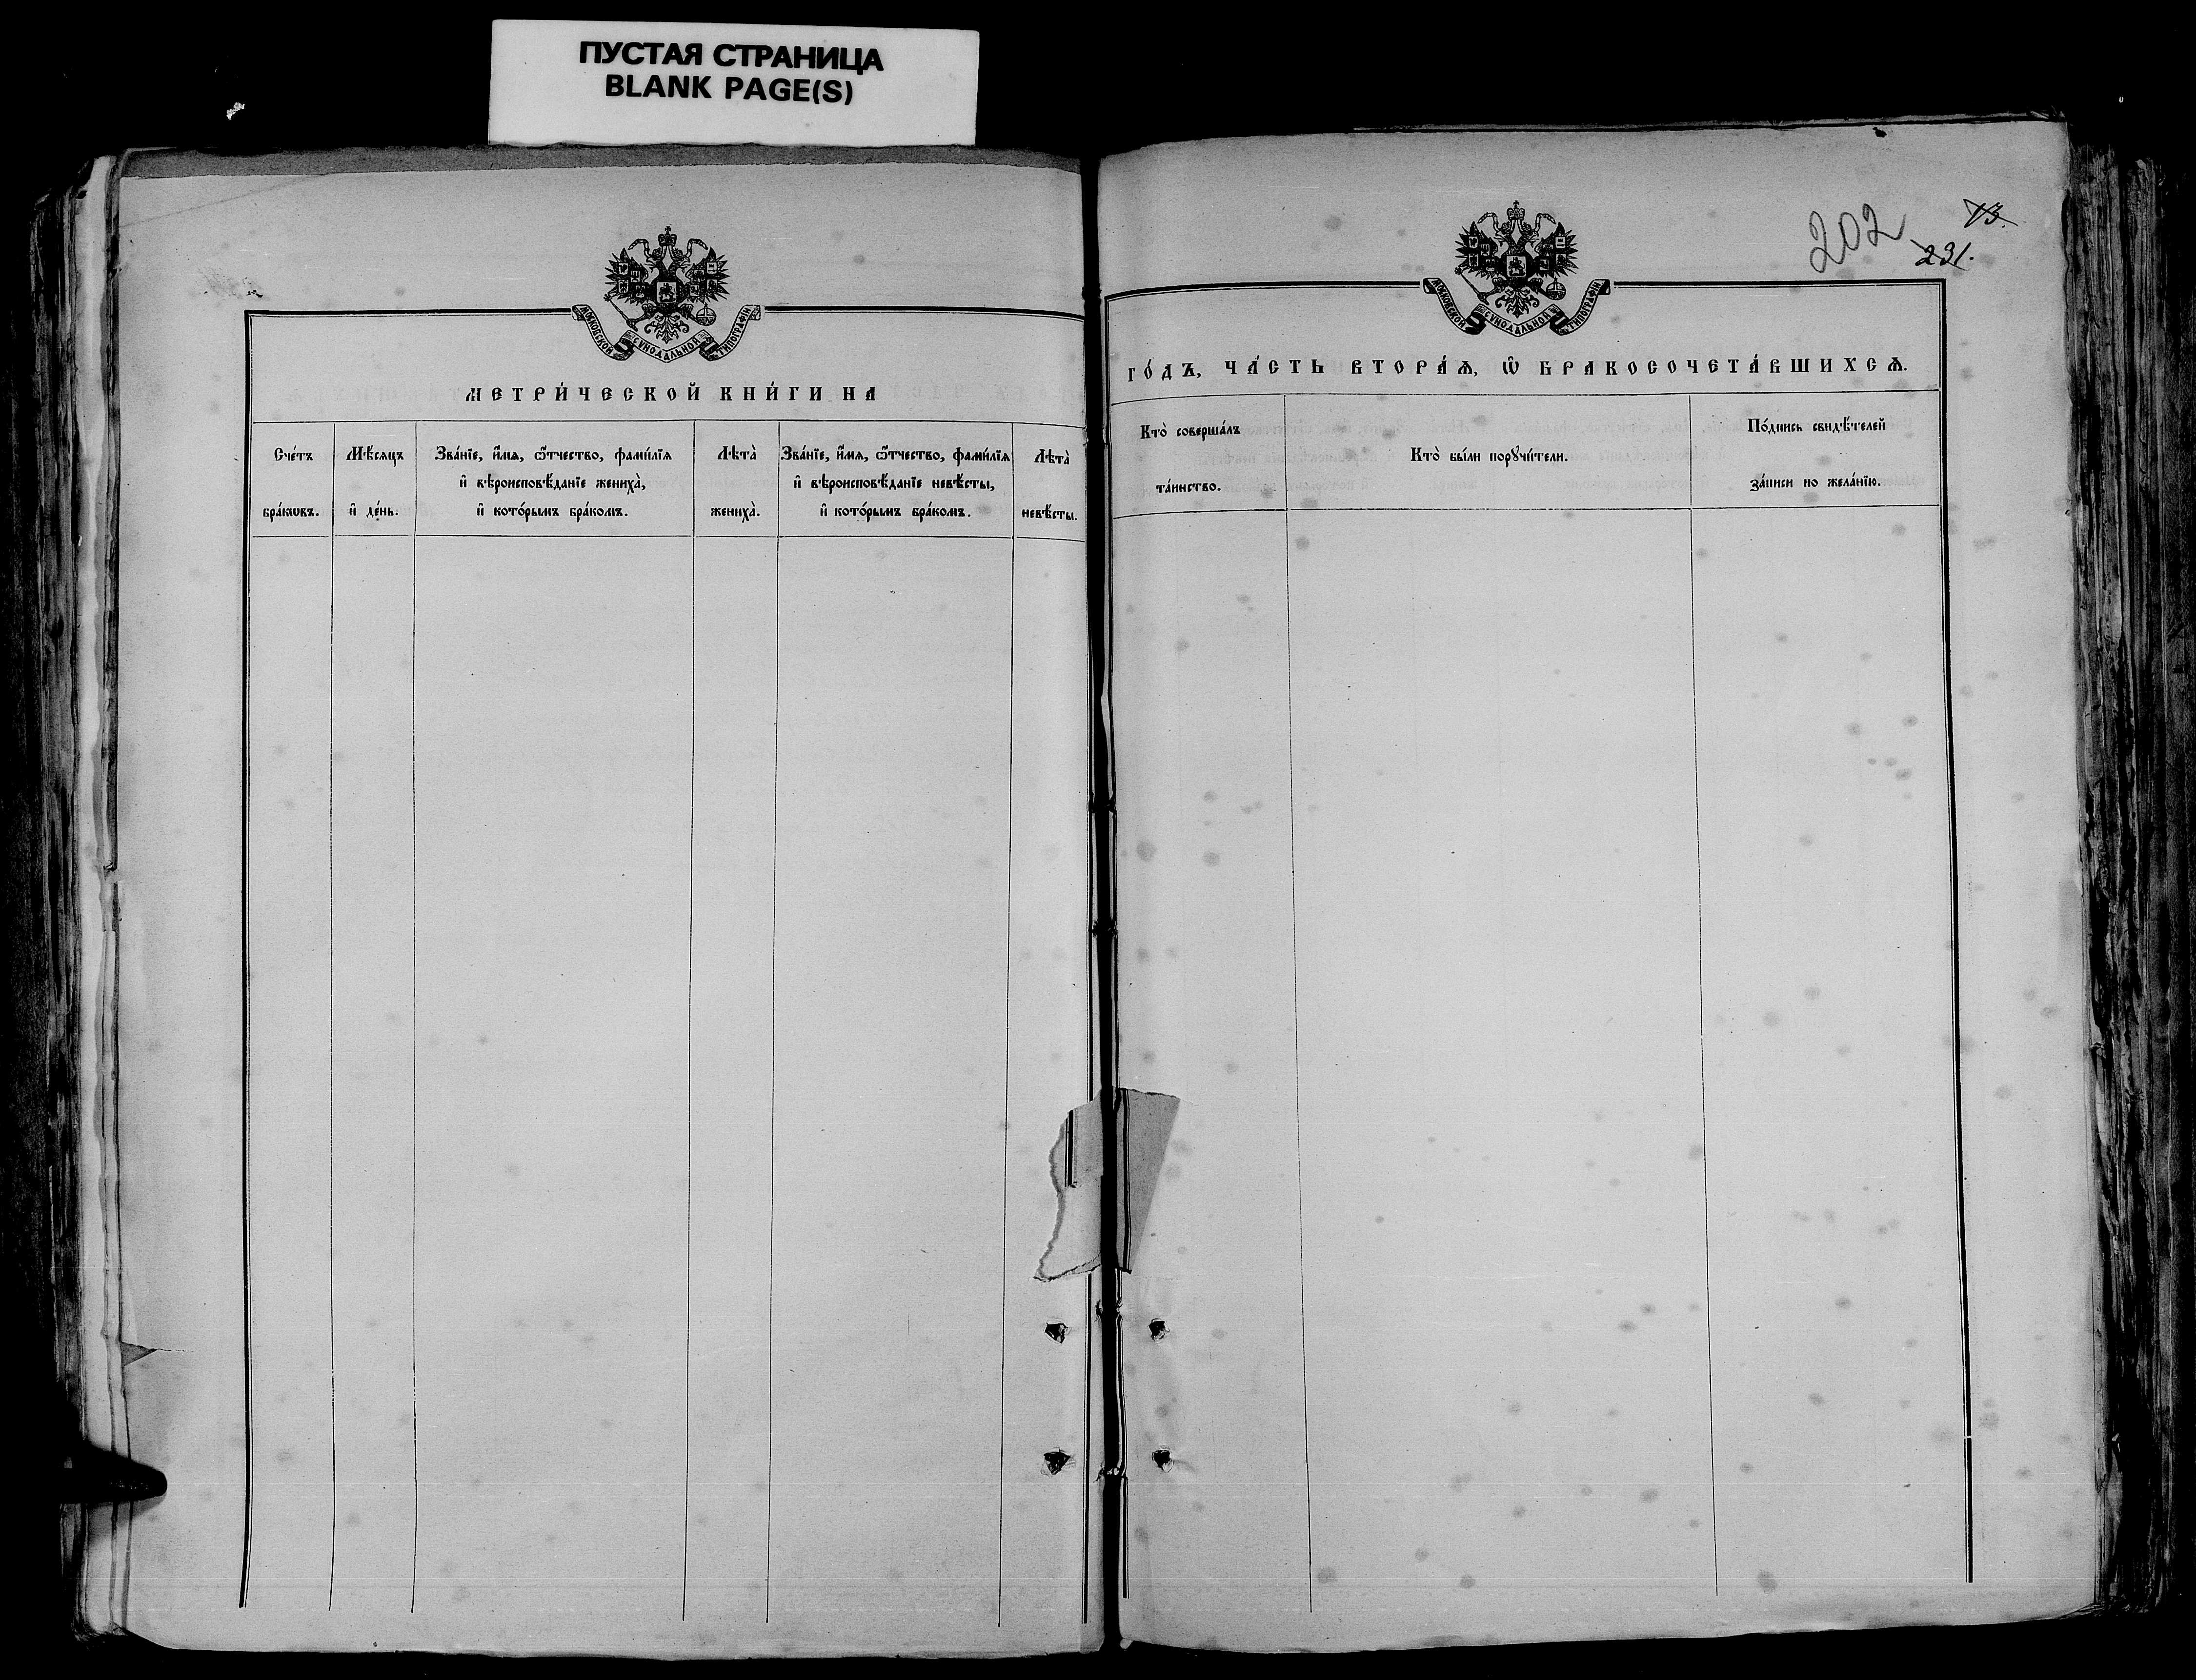 ПУСТАЯ СТРАНИЦА
BLANK PAGE(S)
МОСКОВСКОЙ СѴНОДАЛЬНОЙ ТИПОГРАФІИ
МЕТРИ́ЧЕСКОЙ КНИ́ГИ НА
Сче́тъ
бра́кѡвъ.
Мѣ́сяцъ
и҆ де́нь.
Зва́нїе, и҆́мя, ѻ҆́тчество, фами́лїя
и҆ вѣроисповѣ́данїе жениха̀,
и҆ кото́рымъ бра́комъ.
Лѣта̀
жениха̀.
Зва́нїе, и҆́мя, ѻ҆́тчество, фами́лїя
и҆ вѣроисповѣ́данїе невѣ́сты,
и҆ кото́рымъ бра́комъ.
Лѣта̀
невѣ́сты.
202
13.
231.
МОСКОВСКОЙ СѴНОДАЛЬНОЙ ТИПОГРАФІИ
ГО́ДЪ, ЧА́СТЬ ВТОРА́Ѧ, Ѡ҆ БРАКОСОЧЕТА́ВШИХСѦ.
Кто̀ соверша́лъ
та́инство.
Кто̀ бы́ли порꙋчи́тели.
По́дпись свидѣ́телей
за́писи по жела́нїю.